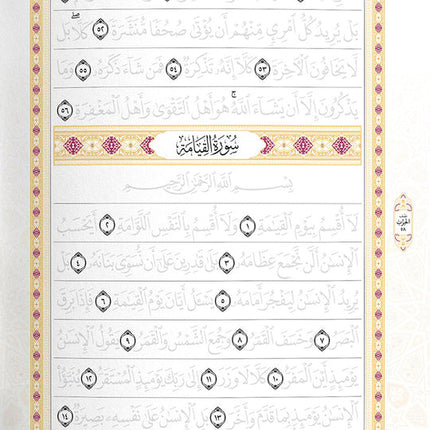 بَلْ يُرِيدُ كُلُّ ٱمْرِئٍ مِّنْهُمْ أَن يُؤْتَىٰ صُحُفًا مُّنَشَّرَةً ٥٢ كَلَّا ۖ بَل
لَّا يَخَافُونَ ٱلْـَٔاخِرَةَ ٥٣ كَلَّآ إِنَّهُۥ تَذْكِرَةٌ ٥٤ فَمَن شَآءَ ذَكَرَهُۥ ٥٥ وَمَا
يَذْكُرُونَ إِلَّآ أَن يَشَآءَ ٱللَّهُ ۚ هُوَ أَهْلُ ٱلتَّقْوَىٰ وَأَهْلُ ٱلْمَغْفِرَةِ ٥٦
سُورَةُ القِيَامَةِ
بِسْمِ ٱللَّهِ ٱلرَّحْمَٰنِ ٱلرَّحِيمِ
لَآ أُقْسِمُ بِيَوْمِ ٱلْقِيَٰمَةِ ١ وَلَآ أُقْسِمُ بِٱلنَّفْسِ ٱللَّوَّامَةِ ٢ أَيَحْسَبُ
ٱلْإِنسَٰنُ أَلَّن نَّجْمَعَ عِظَامَهُۥ ٣ بَلَىٰ قَٰدِرِينَ عَلَىٰٓ أَن نُّسَوِّىَ بَنَانَهُۥ ٤ بَلْ
يُرِيدُ ٱلْإِنسَٰنُ لِيَفْجُرَ أَمَامَهُۥ ٥ يَسْـَٔلُ أَيَّانَ يَوْمُ ٱلْقِيَٰمَةِ ٦ فَإِذَا بَرِقَ
ٱلْبَصَرُ ٧ وَخَسَفَ ٱلْقَمَرُ ٨ وَجُمِعَ ٱلشَّمْسُ وَٱلْقَمَرُ ٩ يَقُولُ ٱلْإِنسَٰنُ
يَوْمَئِذٍ أَيْنَ ٱلْمَفَرُّ ١٠ كَلَّا لَا وَزَرَ ١١ إِلَىٰ رَبِّكَ يَوْمَئِذٍ ٱلْمُسْتَقَرُّ ١٢ يُنَبَّؤُا۟
ٱلْإِنسَٰنُ يَوْمَئِذٍۭ بِمَا قَدَّمَ وَأَخَّرَ ١٣ بَلِ ٱلْإِنسَٰنُ عَلَىٰ نَفْسِهِۦ بَصِيرَةٌ ١٤
الحزب
٥٨